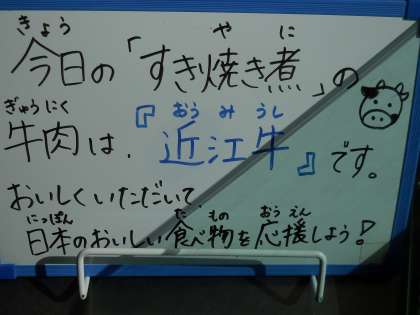 きょう や に
今日の「すき焼き煮」の
ぎゅうにく おうみうし
牛肉は、『近江牛』です。
おいしくいただいて
にっぽん た もの おうえん
日本のおいしい食べ物を応援しよう!